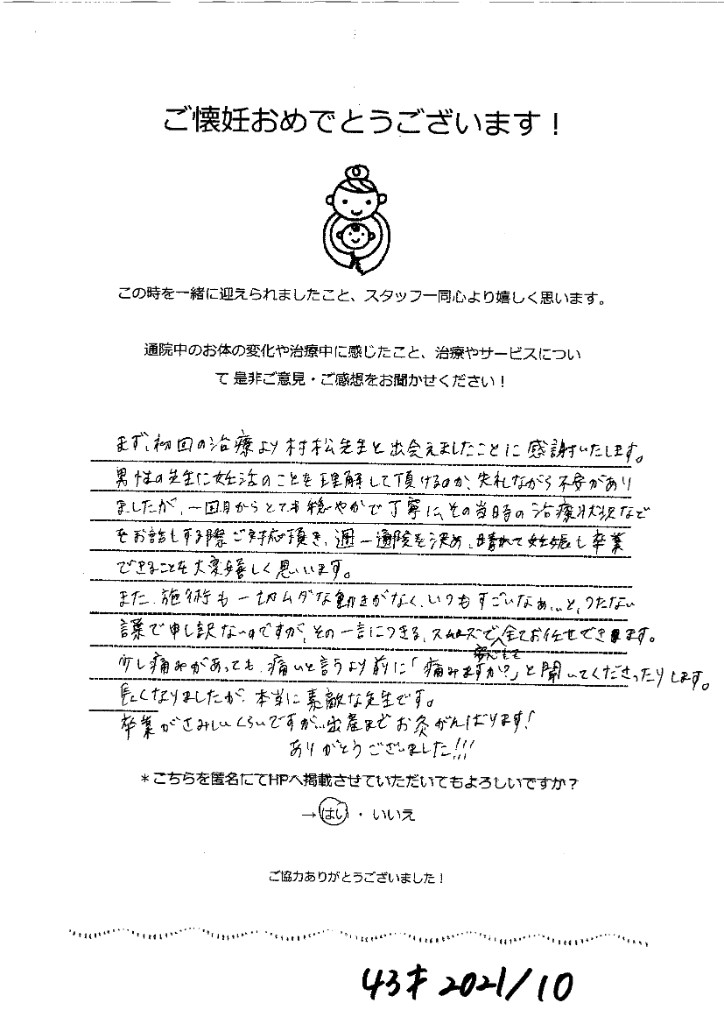 ご懐妊おめでとうございます！
この時を一緒に迎えられましたこと、スタッフ一同心より嬉しく思います。
通院中のお体の変化や治療中に感じたこと、治療やサービスについ
て 是非ご意見・ご感想をお聞かせください！
まず、初回の治療より村松先生と出会えましたことに感謝いたします。
男性の先生に妊活のことを理解して頂けるのか、失礼ながら不安があり
ましたが、一回目からとても穏やかで丁寧に、その当時の治療状況など
をお話しする際ご対応頂き、週一通院を決め、晴れて妊娠し卒業
できることを大変嬉しく思います。
また、施術も一切ムダな動きがなく、いつもすごいなぁ…と、つたない
言葉で申し訳ないのですが、その一言につきる、スムーズで安心して全てお任せできます。
少し痛みがあっても、痛いと言うより前に「痛みますか？」と聞いてくださったりします。
長くなりましたが、本当に素敵な先生です。
卒業がさみしいくらいですが…出産までお灸がんばります！
ありがとうございました!!!
＊こちらを匿名にてHPへ掲載させていただいてもよろしいですか？
→はい・いいえ
ご協力ありがとうございました！
43才 2021/10